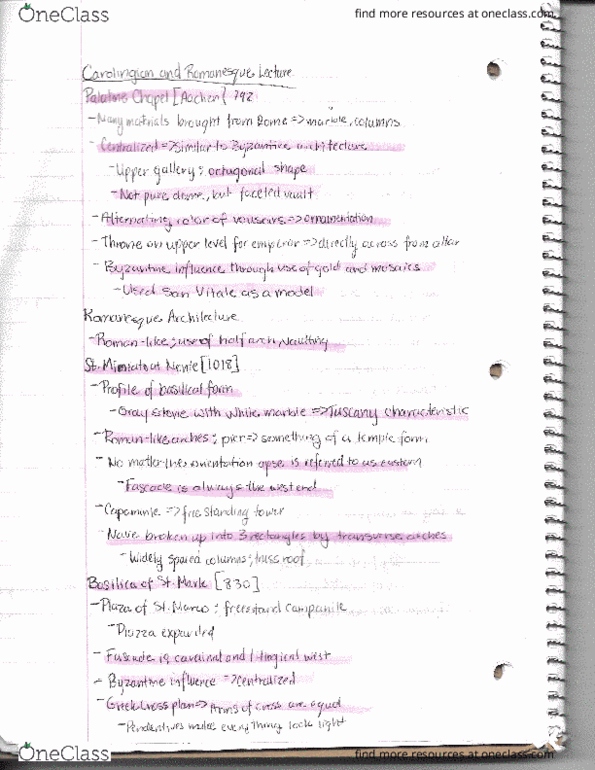 OneClass
find more resources at oneclass.com
Carolingian and Romanesque Lecture
Palatine Chapel [Aachen] 792
- Many materials brought from Rome => marble, columns
- Centralized => Similar to Byzantine architecture
- Upper gallery; octagonal shape
- Not pure dome, but faceted vault
- Alternating color of => ornamentation
- Throne on upper level for emperor => directly across from altar
- Byzantine influence through use of gold and mosaics
- Used San Vitale as a model
Romanesque Architecture
- Roman-like; use of half arch, vaulting
St. [1018]
- Profile of basilical form
- Gray stone with white marble => Tuscany characteristic
- Roman-like arches; pier => something of a temple form
- No matter the orientation apse is referred to as eastern
- Fascade is always the west end
- => free standing tower
- Nave broken up into 3 rectangles by transverse arches
- Widely spaced columns; truss roof
Basilica of St. Mark [830]
- Plaza of St. Marco; freestand campanile
- Piazza expanded
- Fascade is and west
- Byzantine influence => centralized
- Greek cross plan => Arms of cross are equal
- Pendentives make everything look light
OneClass
find more resources at oneclass.com